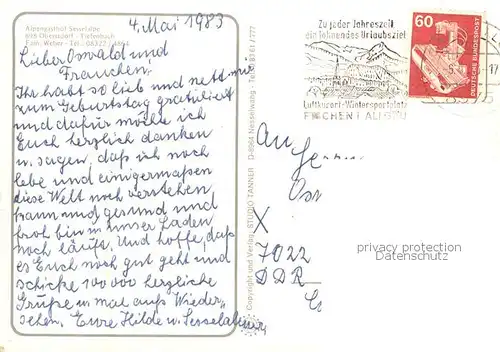 Alpengasthof Sesselalpe
8980 Oberstdorf - Tiefenbach
Fam. Weber - Tel. 08322 /
4. Mai 1983
Lieber Oswald und
Frauchen,
Ihr habt so lieb und nett mir
zum Geburtstag gratuliert
und dafür möchte ich
Euch herzlich danken
u. sagen, daß ich noch
lebe und einigermaßen
diese Welt noch verstehen
kann und gesund und
froh bin in unser Laden
noch läuft. Und hoffe, daß
es Euch noch gut geht und
schicke 100 000 herzliche
Grüße u mal aufs Wieder-
sehen. Eure Hilde u. Sesselalmer
Copyright und Verlag: STUDIO TANNER D-8964 Nesselwang - Telefon 0 83 61 / 777
Zu jeder Jahreszeit
ein lohnendes Urlaubsziel
Luftkurort · Wintersportplatz
FISCHEN I. ALLGÄU
60
DEUTSCHE BUNDESPOST
An
X
7022
DDR
privacy protection
Datenschutz